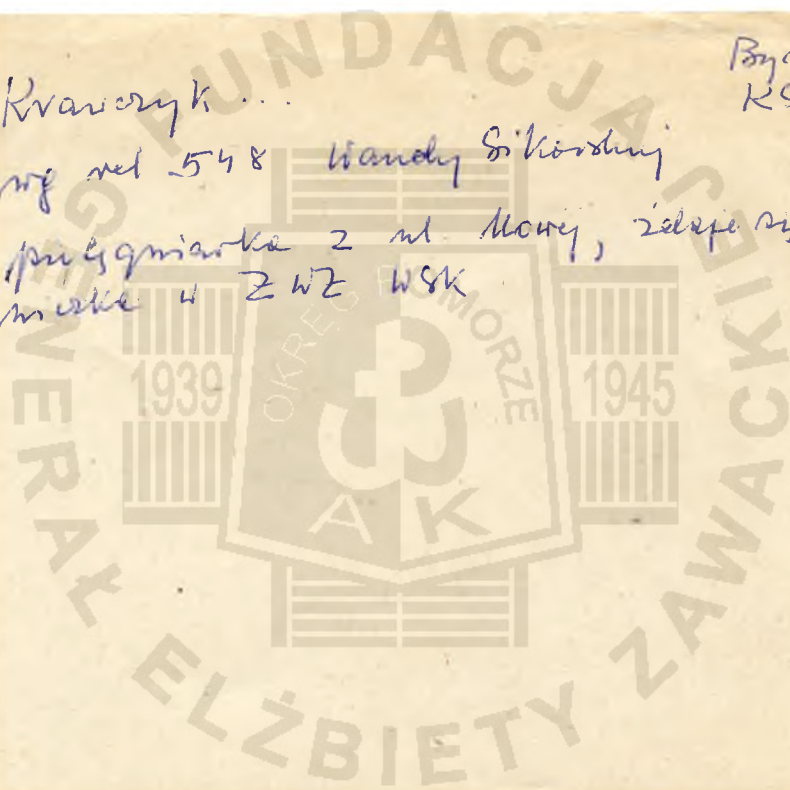 Byd
KS
Krawczyk...
wg rel 548 Wandy Sikorskiej
pielęgniarka z ul. Nowej, zdaje się
w ZWZ WSK
FUNDACJA
GENERAŁ ELŻBIETY ZAWACKIEJ
OKRĘG POMORZE
1939
1945
AK